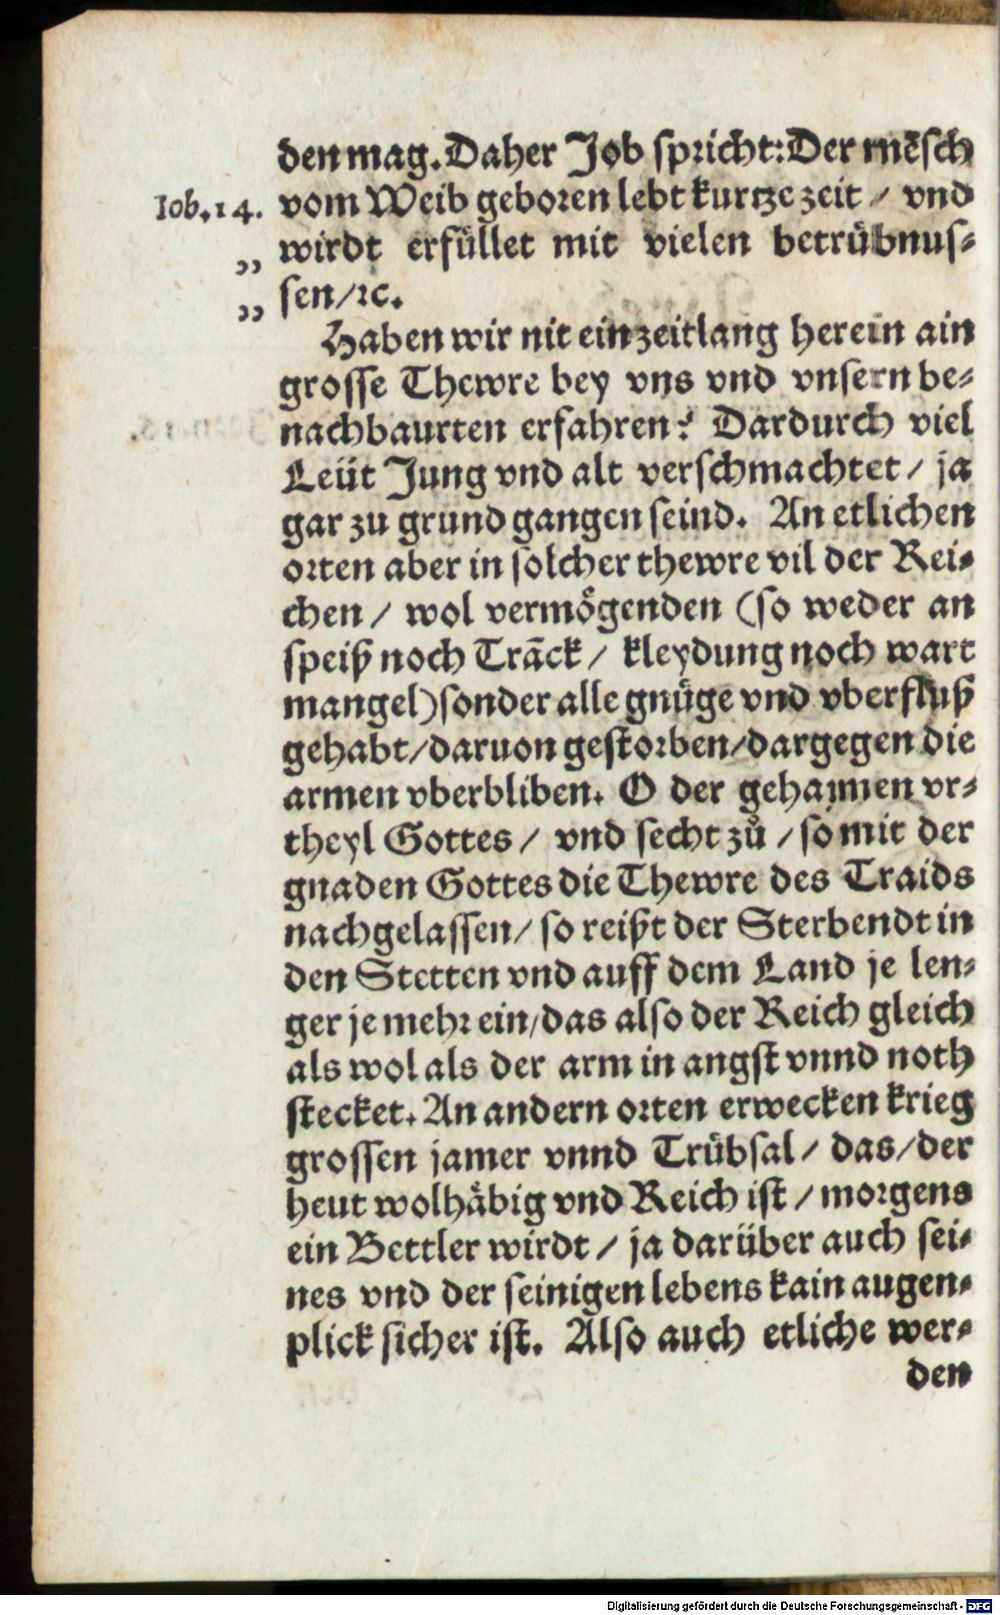 den mag. Daher Job spricht: Der mēsch
Iob. 14. vom Weib geboren lebt kurtze zeit / vnd
„ wirdt erfüllet mit vielen betrübnus⸗
„ sen / ꝛc.
Haben wir nit ein zeitlang herein ain
grosse Thewre bey vns vnd vnsern be⸗
nachbaurten erfahren? Dardurch viel
Leüt Jung vnd alt verschmachtet / ja
gar zu grund gangen seind. An etlichen
orten aber in solcher thewre vil der Rei⸗
chen / wol vermögenden (so weder an
speiß noch Trāck / kleydung noch wart
mangel) sonder alle gnüge vnd vberfluß
gehabt / daruon gestorben / dargegen die
armen vberbliben. O der gehaimen vr⸗
theyl Gottes / vnd secht zů / so mit der
gnaden Gottes die Thewre des Traids
nachgelassen / so reißt der Sterbendt in
den Stetten vnd auff dem Land je len⸗
ger je mehr ein / das also der Reich gleich
als wol als der arm in angst vnnd noth
stecket. An andern orten erwecken krieg
grossen jamer vnnd Trübsal / das / der
heut wolhäbig vnd Reich ist / morgens
ein Bettler wirdt / ja darüber auch sei⸗
nes vnd der seinigen lebens kain augen⸗
plick sicher ist. Also auch etliche wer⸗
den
Digitalisierung gefördert durch die Deutsche Forschungsgemeinschaft - DFG